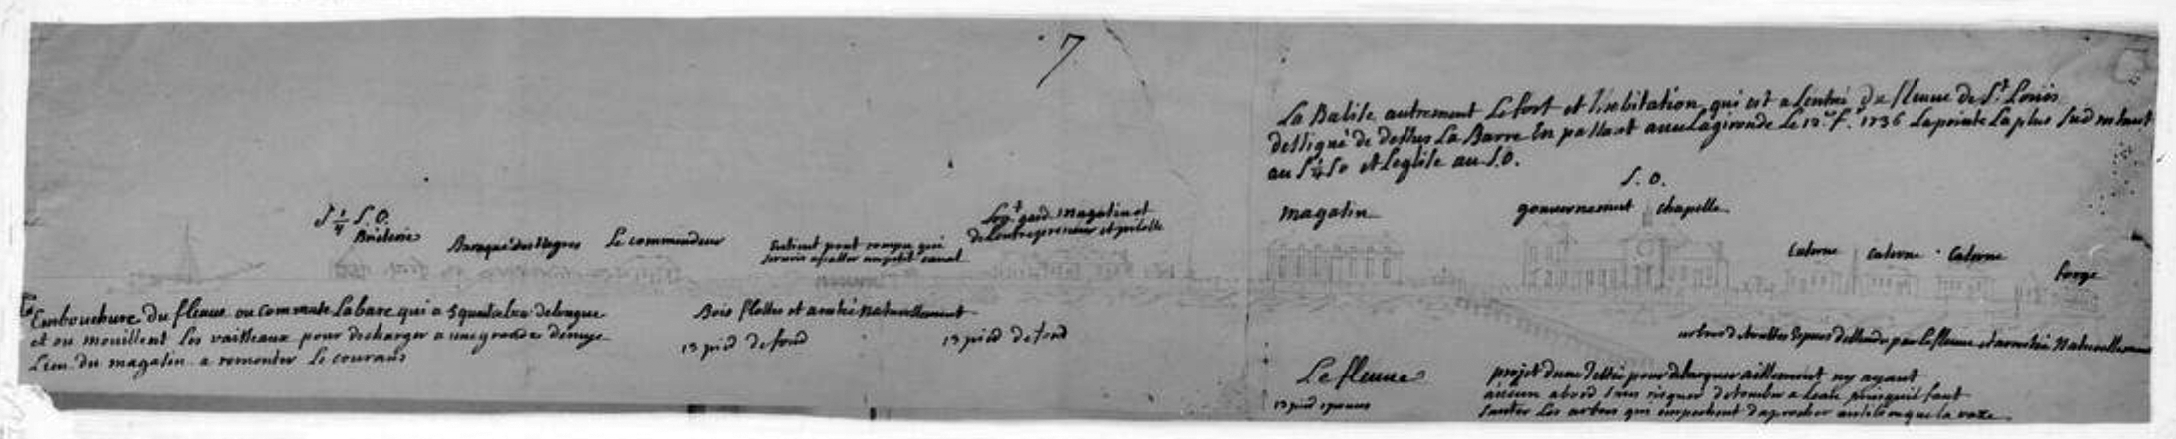 7
La Balise autrement Le fort et l'habitation qui est a Lentrée du fleuve de St. Louis
dessigné de dessus La Barre En passant avec Lagironde Le 12e f. 1736 La pointe La plus Sud restant
au S 1/4 So et Leglise au S.O.
S. O.
magasin gouvernement chapelle
S 1/4 S.O.
Briqterie
Baraque des Negres Le commandeur
pont rompu qui
un petit canal
Log.t gard magasin et
de Lentrepreneur et pilotte
Caserne Caserne Caserne
forge
Embouchure du fleuve ou commence La bare qui a quart de longue
et ou mouillent Les vaisseaux pour decharger a une grande demye
Lieu du magasin a remonter Le courans
Bois flottes et arretté Naturellement
13 pied de fond 13 pied de fond
par Le fleuve et Naturellement
Le fleuve
13 pied
projet dune Jettée pour debarquer aisement ny ayant
aucun abord sans risquer de tomber a Leau puisquil faut
Sauter Les arbres qui empechent daprocher